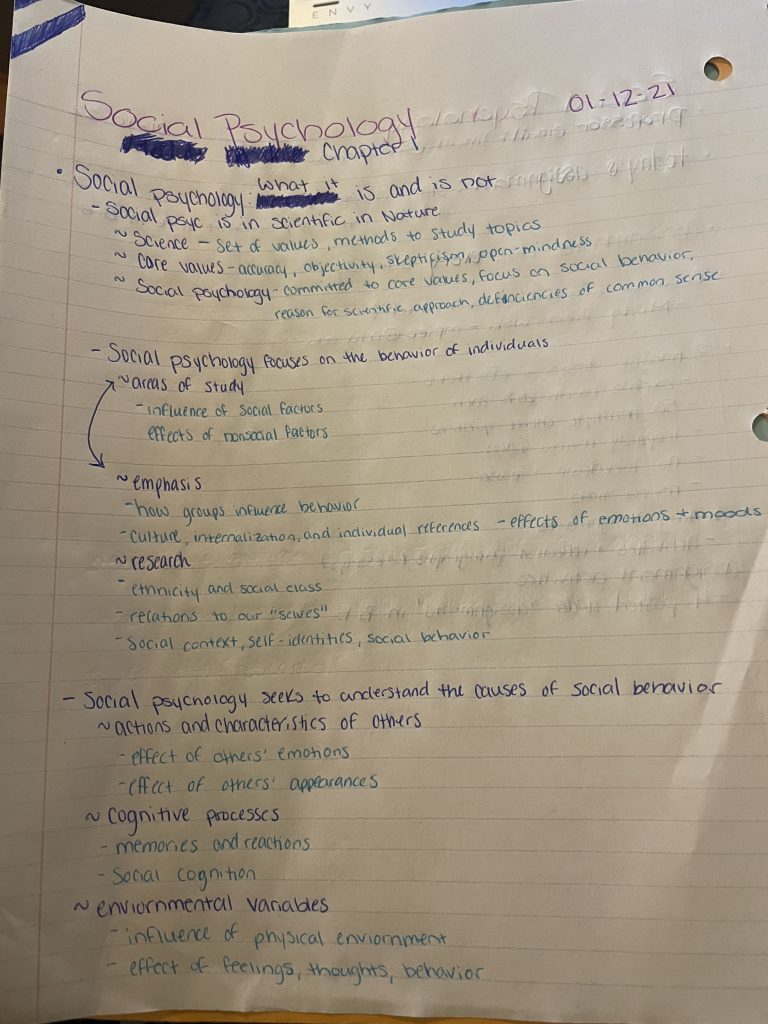 ENVY
Social Psychology 01-12-21
Chapter 1
• Social psychology: what it is and is not
- Social psyc is in scientific in Nature
~ Science - set of values, methods to study topics
~ Core values - accuracy, objectivity, skepticism, open-mindness
~ Social psychology - committed to core values, focus on social behavior,
reason for scientific approach, deficiencies of common sense
- Social psychology focuses on the behavior of individuals
~ areas of study
- influence of social factors
effects of nonsocial factors
~ emphasis
- how groups influence behavior
- culture, internalization, and individual references - effects of emotions + moods
~ research
- ethnicity and social class
- relations to our "selves"
- Social context, self-identities, social behavior
- Social psychology seeks to understand the causes of social behavior
~ actions and characteristics of others
- effect of others' emotions
- effect of others' appearances
~ Cognitive processes
- memories and reactions
- Social cognition
~ enviornmental variables
- influence of physical enviornment
- effect of feelings, thoughts, behavior